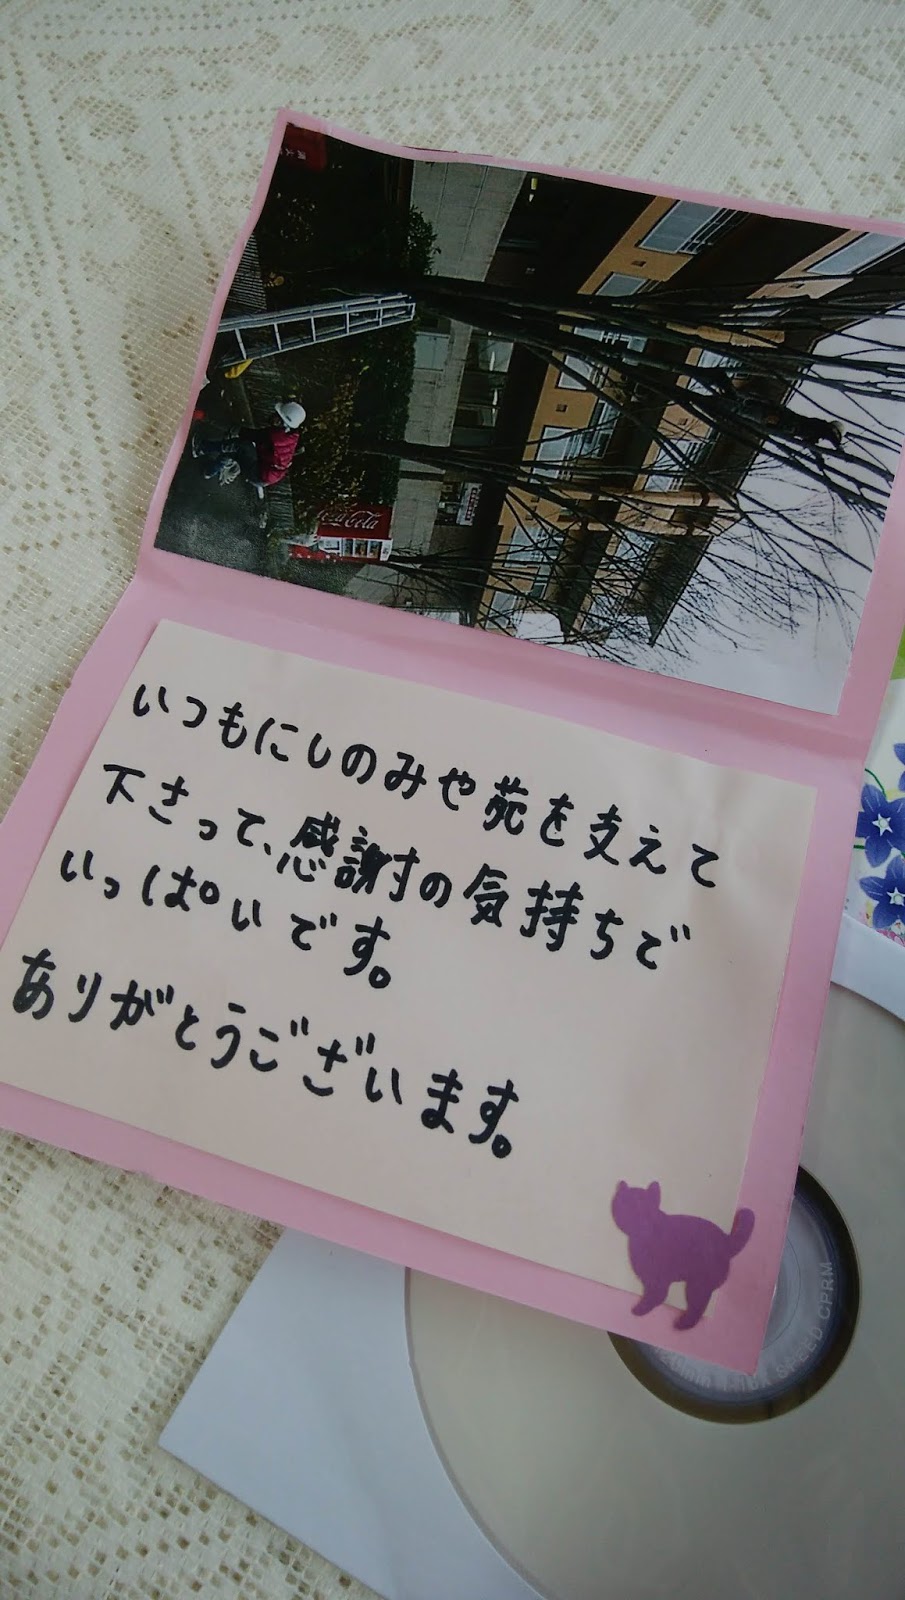 Coca-Cola
いつもにしのみや苑を支えて
下さって、感謝の気持ちで
いっぱいです。
ありがとうございます。
SPEED CPRM